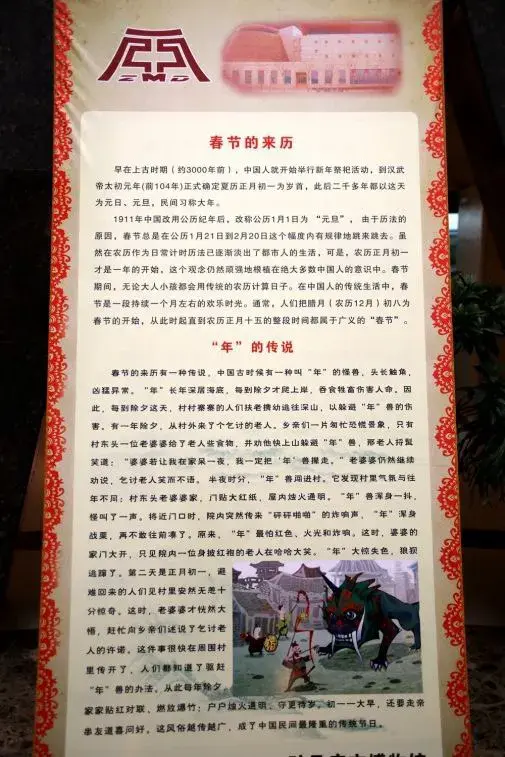 ZMD
春节的来历
早在上古时期（约3000年前），中国人就开始举行新年祭祀活动，到汉武
帝太初元年(前104年)正式确定夏历正月初一为岁首，此后二千多年都以这天
为元日、元旦，民间习称大年。
1911年中国改用公历纪年后，改称公历1月1日为 “元旦”， 由于历法的
原因，春节总是在公历1月21日到2月20日这个幅度内有规律地跳来跳去。虽
然在农历作为日常计时历法已逐渐淡出了都市人的生活，可是，农历正月初一
才是一年的开始，这个观念仍然顽强地根植在绝大多数中国人的意识中。春节
期间，无论大人小孩都会用传统的农历计算日子。在中国人的传统生活中，春
节是一段持续一个月左右的欢乐时光。通常，人们把腊月（农历12月）初八为
春节的开始，从此时起直到农历正月十五的整段时间都属于广义的“春节”。
“年”的传说
春节的来历有一种传说，中国古时候有一种叫“年”的怪兽，头长触角，
凶猛异常。“年”长年深居海底，每到除夕才爬上岸，吞食牲畜伤害人命。因
此，每到除夕这天，村村寨寨的人们扶老携幼逃往深山，以躲避“年”兽的伤
害。有一年除夕，从村外来了个乞讨的老人。乡亲们一片匆忙恐慌景象，只有
村东头一位老婆婆给了老人些食物，并劝他快上山躲避“年”兽，那老人捋髯
笑道：“婆婆若让我在家呆一夜，我一定把‘年’兽撵走。”老婆婆仍然继续
劝说，乞讨老人笑而不语。 半夜时分，“年”兽闯进村。它发现村里气氛与往
年不同：村东头老婆婆家，门贴大红纸，屋内烛火通明。“年”兽浑身一抖，
怪叫了一声。将近门口时，院内突然传来“砰砰啪啪”的炸响声，“年”浑身
战栗，再不敢往前凑了。原来，“年”最怕红色、火光和炸响。这时，婆婆的
家门大开，只见院内一位身披红袍的老人在哈哈大笑。“年”大惊失色，狼狈
逃蹿了。第二天是正月初一，避
难回来的人们见村里安然无恙十
分惊奇。这时，老婆婆才恍然大
悟，赶忙向乡亲们述说了乞讨老
人的许诺。这件事很快在周围村
里传开了，人们都知道了驱赶
“年”兽的办法。从此每年除夕，
家家贴红对联、燃放爆竹；户户烛火通明、守更待岁。初一一大早，还要走亲
串友道喜问好。这风俗越传越广，成了中国民间最隆重的传统节日。